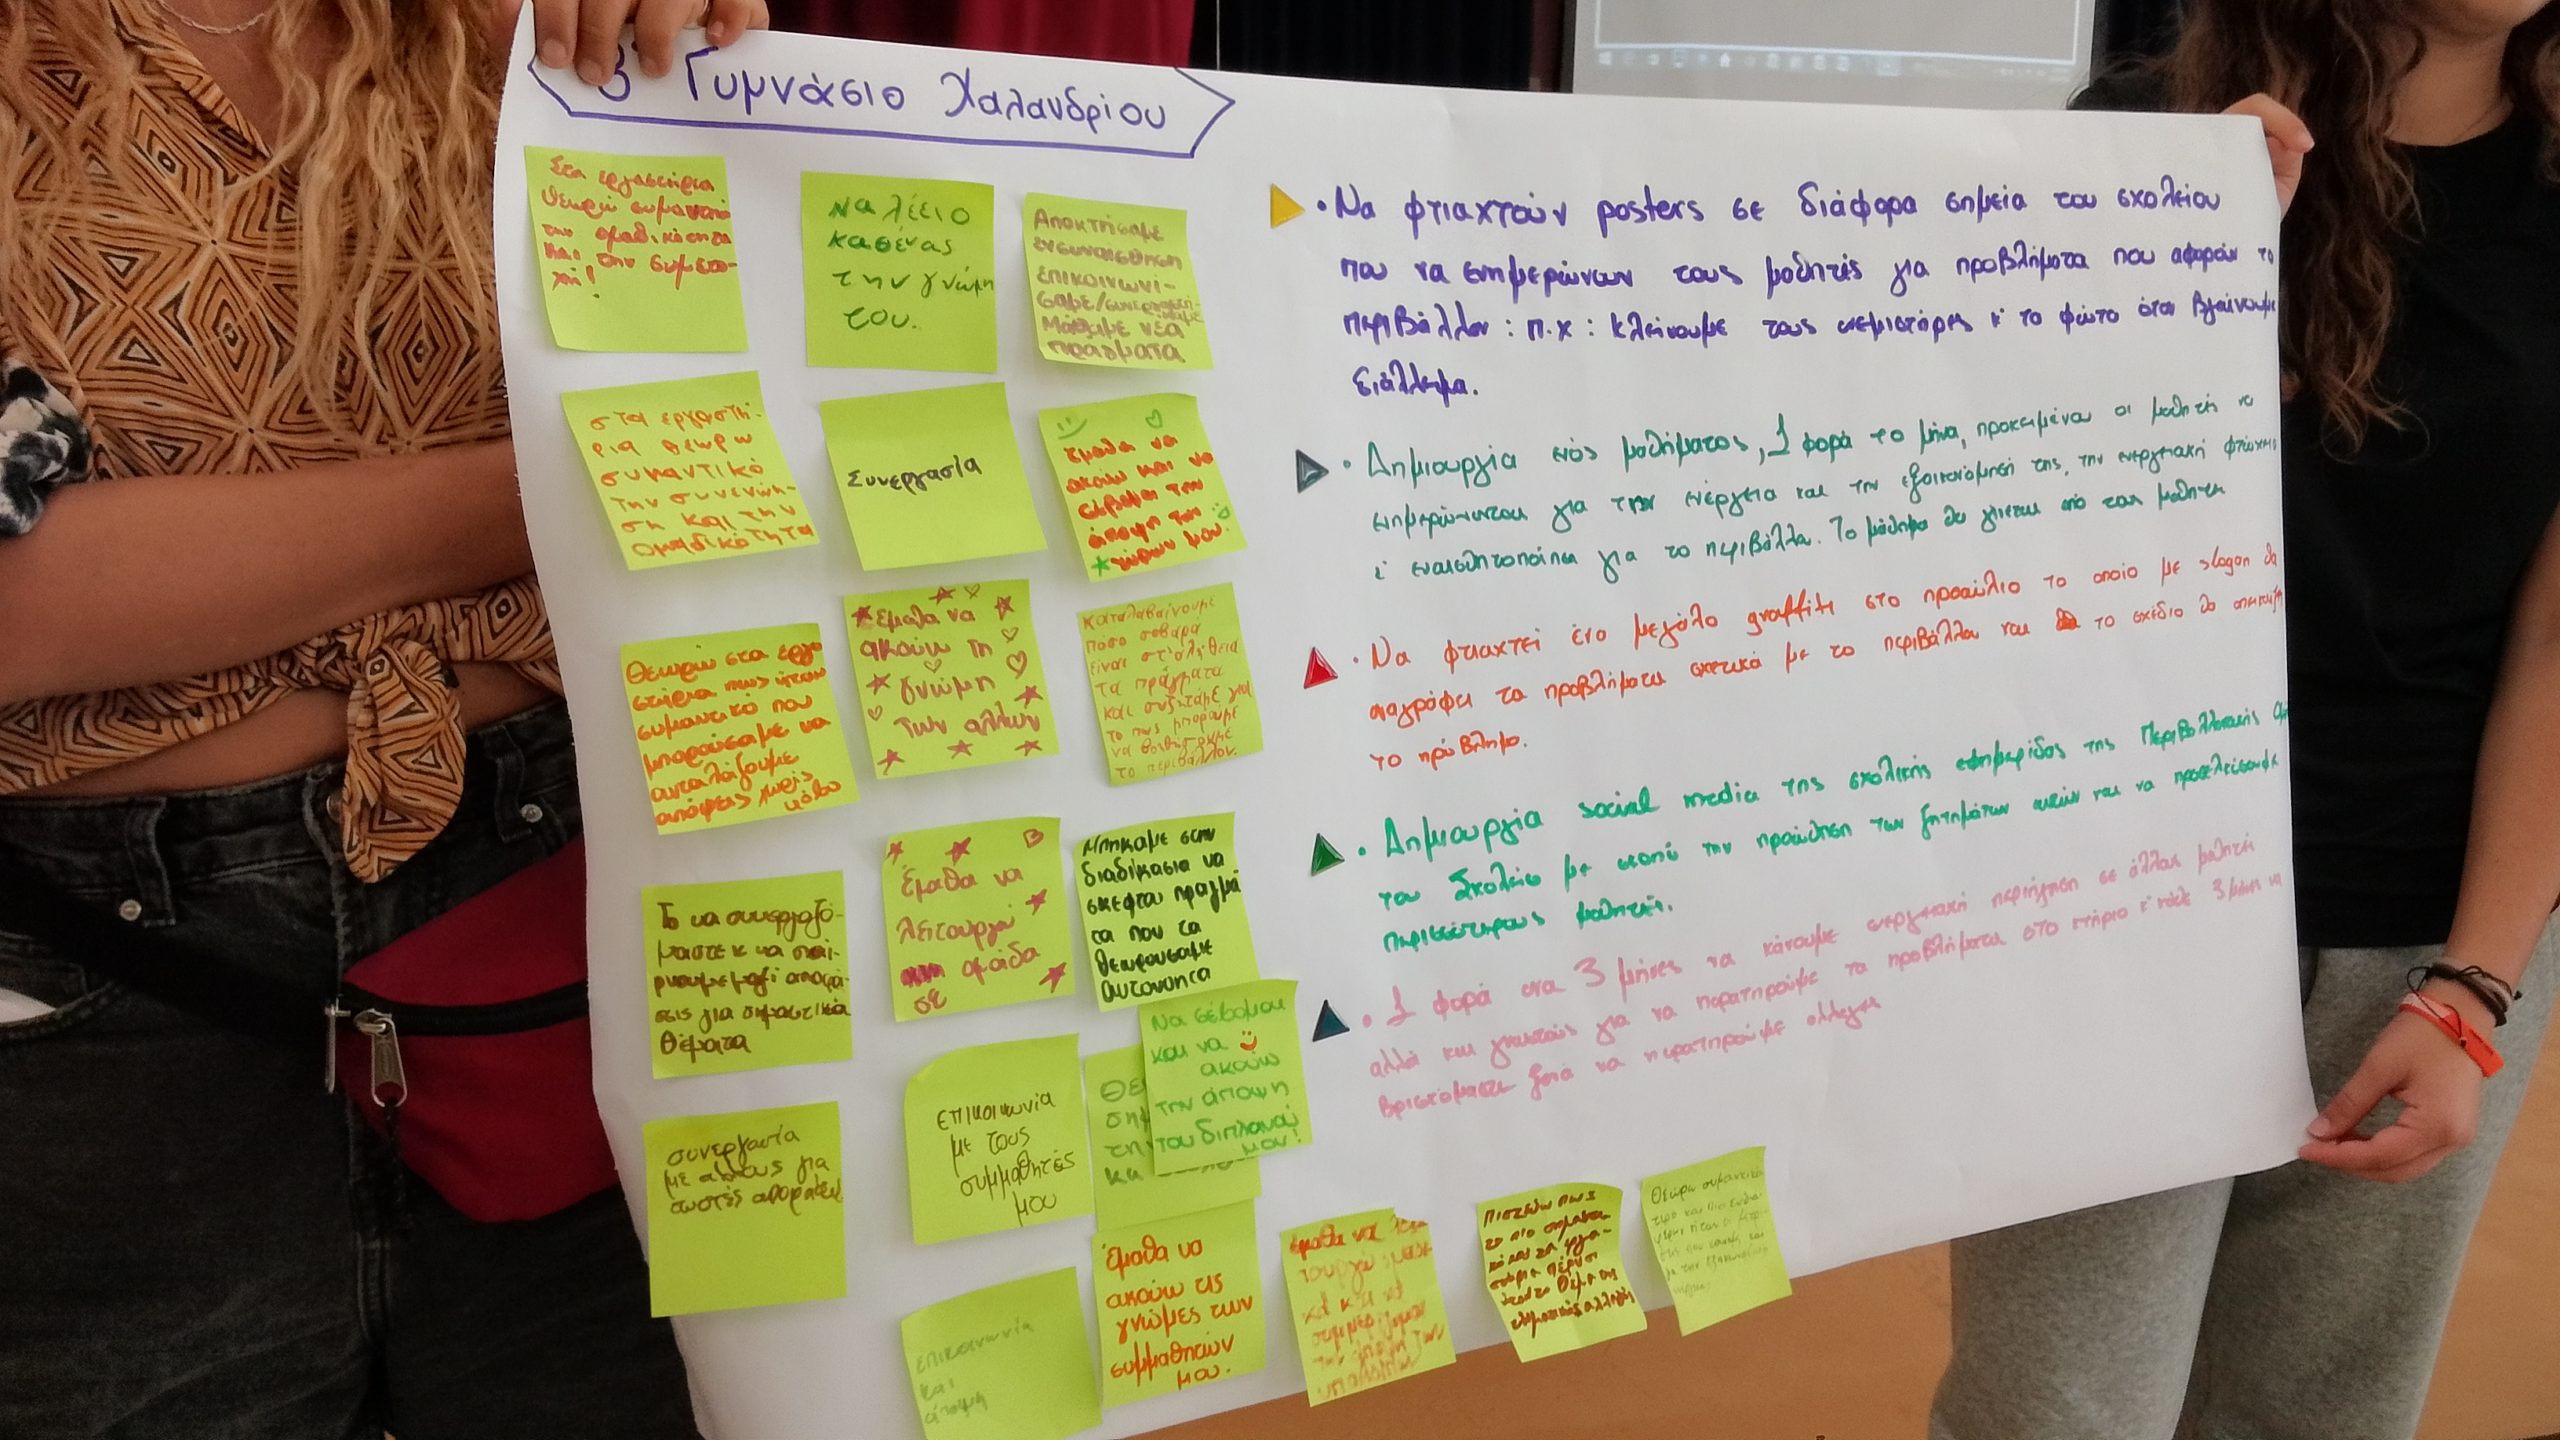 Γυμνάσιο Χαλανδρίου
Στα εργαστήρια
θεωρώ σημαντικό
την ομαδικότητα
και την συμμετο-
χή!
Να λέει ο
καθένας
την γνώμη
του.
Αποκτήσαμε
ενσυναίσθηση
επικοινωνή-
σαμε/συνεργαστή-
καμε
Μάθαμε νέα
πράγματα
στα εργαστή-
ρια θεωρώ
σημαντικό
την συνεννόη-
ση και την
ομαδικότητα
Συνεργασία
Έμαθα να
ακούω και να
σέβομαι την
άποψη των
γύρων μου!
Θεωρώ στα εργα
στήρια πως ήταν
σημαντικό που
μπορούσαμε να
ανταλάζουμε
απόψεις χωρίς
Έμαθα να
ακούω τη
γνώμη
των αλλων
καταλαβαίνουμε
πόσο σοβαρά
είναι στ'αλήθεια
τα πράγματα
και συζητάμε για
το πως μπορουμε
να βοηθήσουμε
το περιβάλλον.
Το να συνεργαζό-
μαστε κ να παίρ-
νουμε μαζί αποφά-
σεις για σημαντικά
θέματα
Έμαθα να
λειτουργώ
σε ομάδα
Μπήκαμε στην
διαδικασια να
σκεφτου πραγμά
τα που τα
θεωρουσαμε
αυτονοητα
Να σέβομαι
και να
ακούω
την άποψη
του διπλανού
μου!
συνεργασία
με αλλους για
σωστές αποφάσεις
επικοινωνία
με τους
συμμαθητές
μου
επικοινωνία
και
άποψη
Έμαθα να
ακούω τις
γνώμες των
συμμαθητών
μου.
Έμαθα να
Πιστεύω πως
το πιο σημαντι
κό και τα εργα-
στήρια πέρυσι
ήταν το θέμα της
κλιματικής αλλαγής
Θεωρώ σημαντικό
• Να φτιαχτούν posters σε διάφορα σημεία του σχολείου
που να ενημερώνουν τους μαθητές για προβλήματα που αφορούν το
περιβάλλον : π.χ : κλείνουμε τους ανεμιστήρες κ' το φώτο όταν βγαίνουμε
διάλλειμα.
• Δημιουργία ενός μαθήματος, 1 φορά το μήνα, προκειμένου οι μαθητές να
ενημερώνονται για την ενέργεια και την εξοικονόμησή της, την ενεργειακή φτώχεια
κ' ευαισθητοποίηση για το περιβάλλο. Το μάθημα θα γίνεται από τον μαθητη
• Να φτιαχτεί ένα μεγάλο graffiti στο προαύλιο το οποίο με slogan θα
αναγράφει τα προβλήματα σχετικά με το περιβάλλον και το σχέδιο θα απεικονίζει
το πρόβλημα.
• Δημιουργία social media της σχολικής εφημερίδας της Περιβαλλοντικής
του Σχολείου με σκοπό την προώθηση των ζητημάτων αυτών και να προσελκύσουμε
περισσότερους μαθητές.
• 1 φορά στα 3 μήνες να κάνουμε ενεργειακή περιήγηση σε άλλους μαθητές
αλλά και γνωστούς για να παρατηρούμε τα προβλήματα στο κτήριο κ' κάθε 3 μήνες να
βρισκόμαστε ξανά να παρατηρούμε αλλαγές